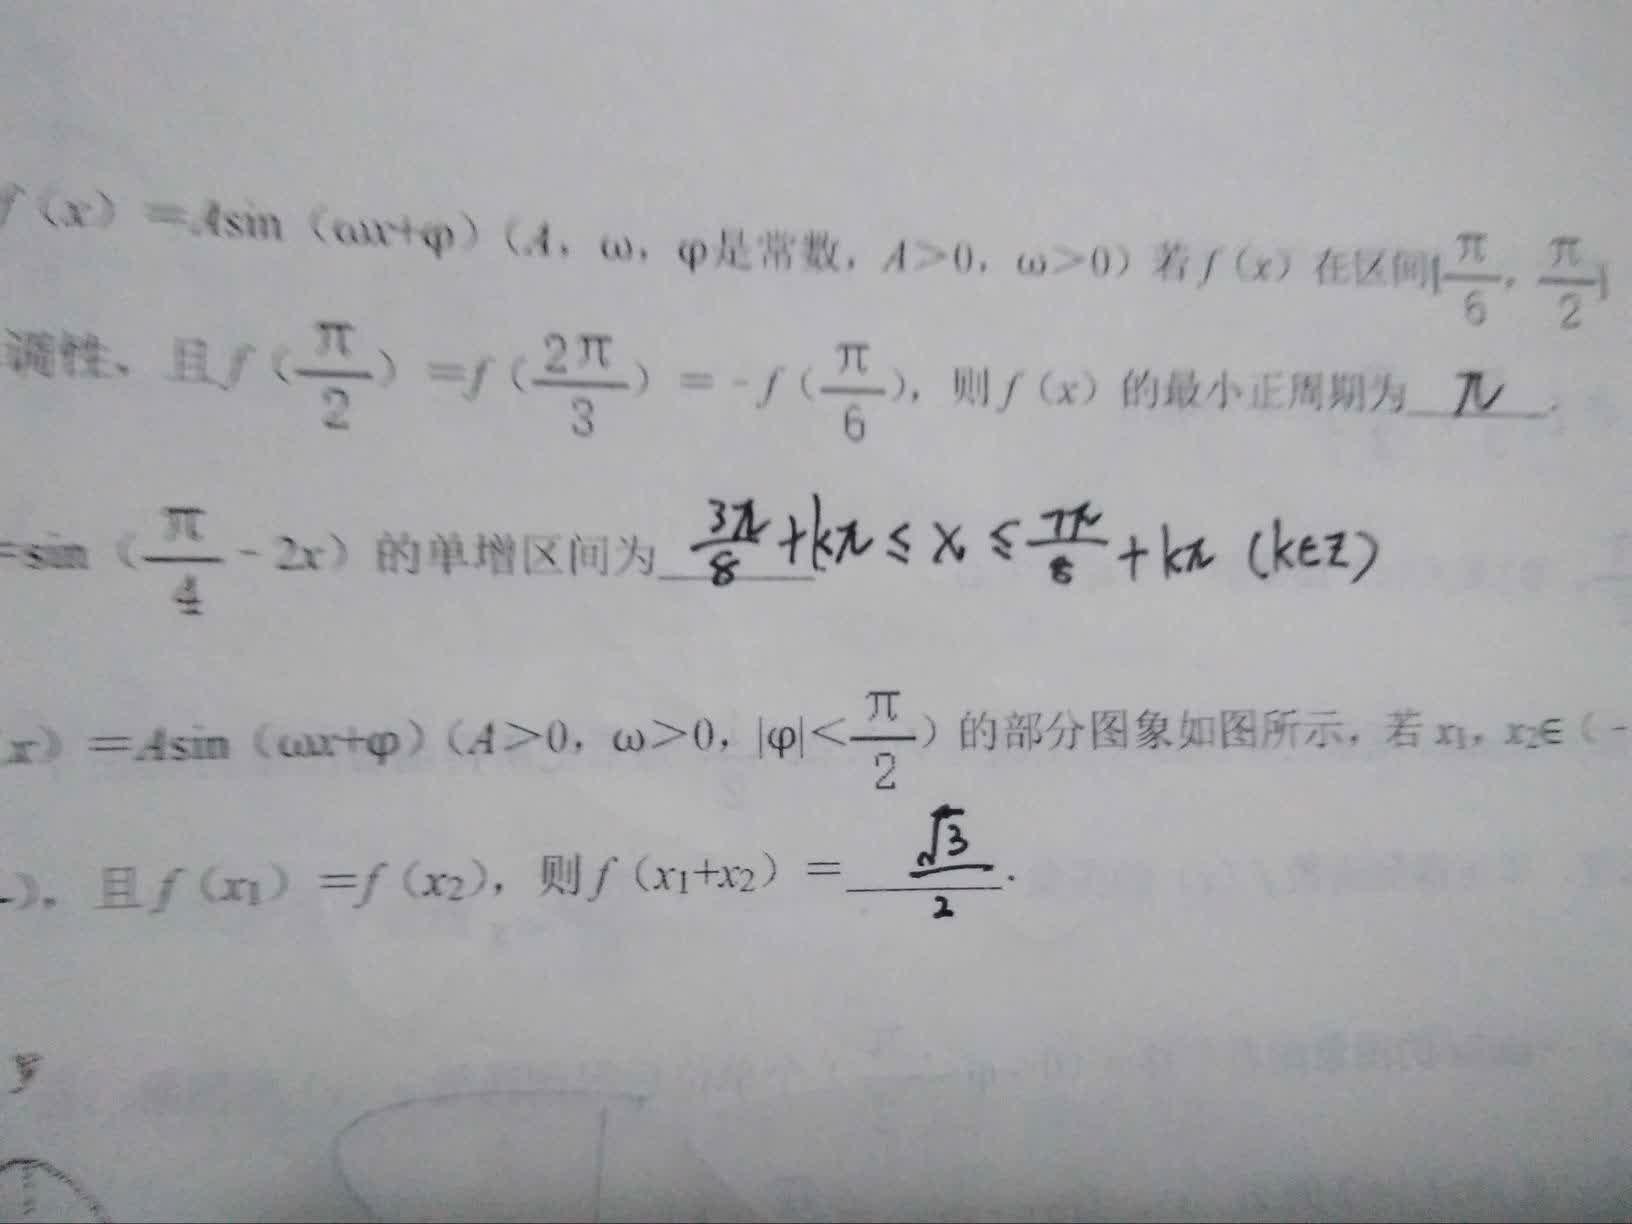 f（x）=Asin（ωx+φ）（A，ω，φ是常数，A>0，ω>0）若f（x）在区间[π/6，π/2]
调性，且f（π/2）=f（2π/3）=-f（π/6），则f（x）的最小正周期为 π .
=sin（π/4-2x）的单增区间为 3π/8+kπ≤x≤7π/8+kπ (k∈Z)
x）=Asin（ωx+φ）（A>0，ω>0，|φ|<π/2）的部分图象如图所示，若x₁，x₂∈（-
），且f（x₁）=f（x₂），则f（x₁+x₂）= √3/2 .